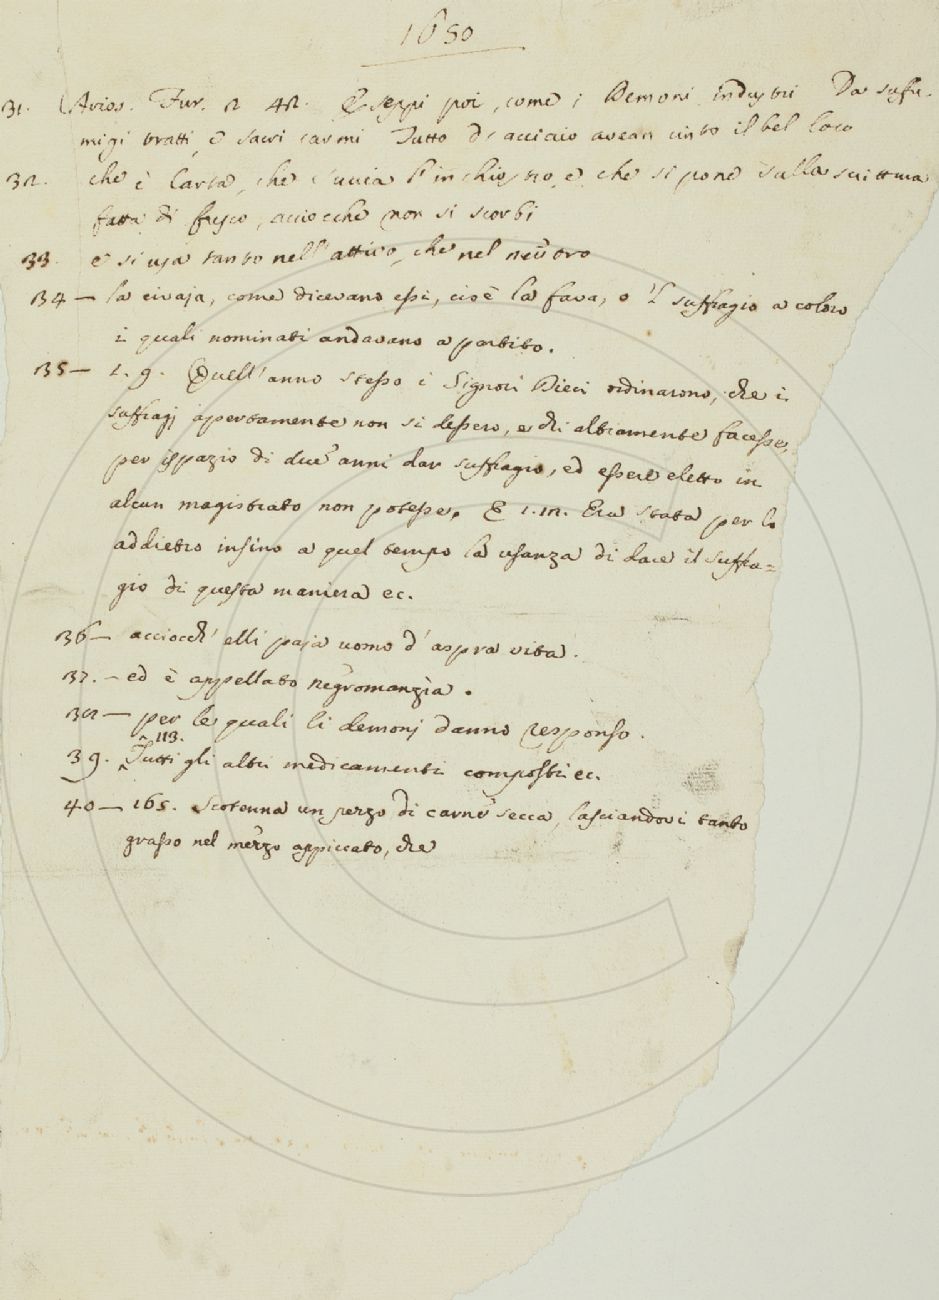 1650
31. Arios. Fur. 2 42. E seppi poi, come i Demoni industri Da suffu-
migi tratti, e sacri carmi Tutto d'acciaio avean cinto il bel loco
32. che è Carta, che succia l'inchiostro, e che si pone sulla scrittura
fatta di fresco, acciocchè non si scorbi
33. e si usa tanto nell'attivo, che nel neutro
34 — la civaja, come dicevano essi, cioè la fava, o 'l suffragio a coloro
i quali nominati andavano a partito.
35 — 1. 9. Quell'anno stesso i Signori Dieci ordinarono, che i
suffragj apertamente non si dessero, e chi altramente facesse,
per ispazio di due anni dar suffragio, ed essere eletto in
alcun magistrato non potesse. E 1. 12. Era stata per lo
addietro insino a quel tempo la usanza di dare il suffra=
gio di questa maniera ec.
36 — acciocch' elli paja uomo d' aspra vita.
37. — ed è appellato negromanzia.
38 — per le quali li demonj danno responso.
39. 113. Tutti gli altri medicamenti composti ec.
40 — 165. Scotenna un pezzo di carne secca, lasciandovi tanto
grasso nel mezzo appiccato, che